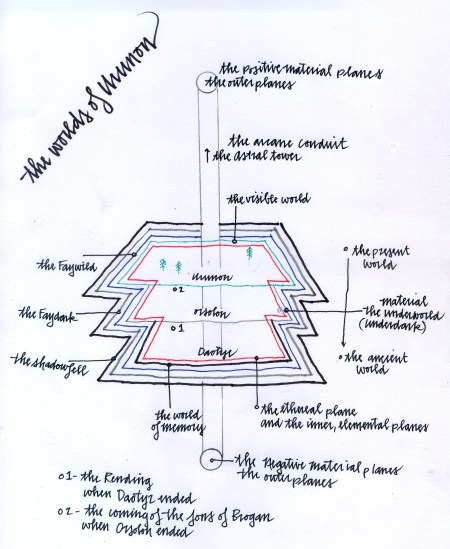 the worlds of Munon
the positive material planes
the outer planes
the arcane conduit
the astral tower
the visible world
the Faywild
the present
world
Munon
2
the Faydark
orsolon
material
the underworld
(underdark)
1
the shadowfell
Daotyr
the ancient
world
the world
of memory
the ethereal plane
and the inner, elemental planes
the Negative material planes
the outer planes
1- the Rending
when Daotyr ended
2- the coming of the sons of Brogan
when Orsolon ended